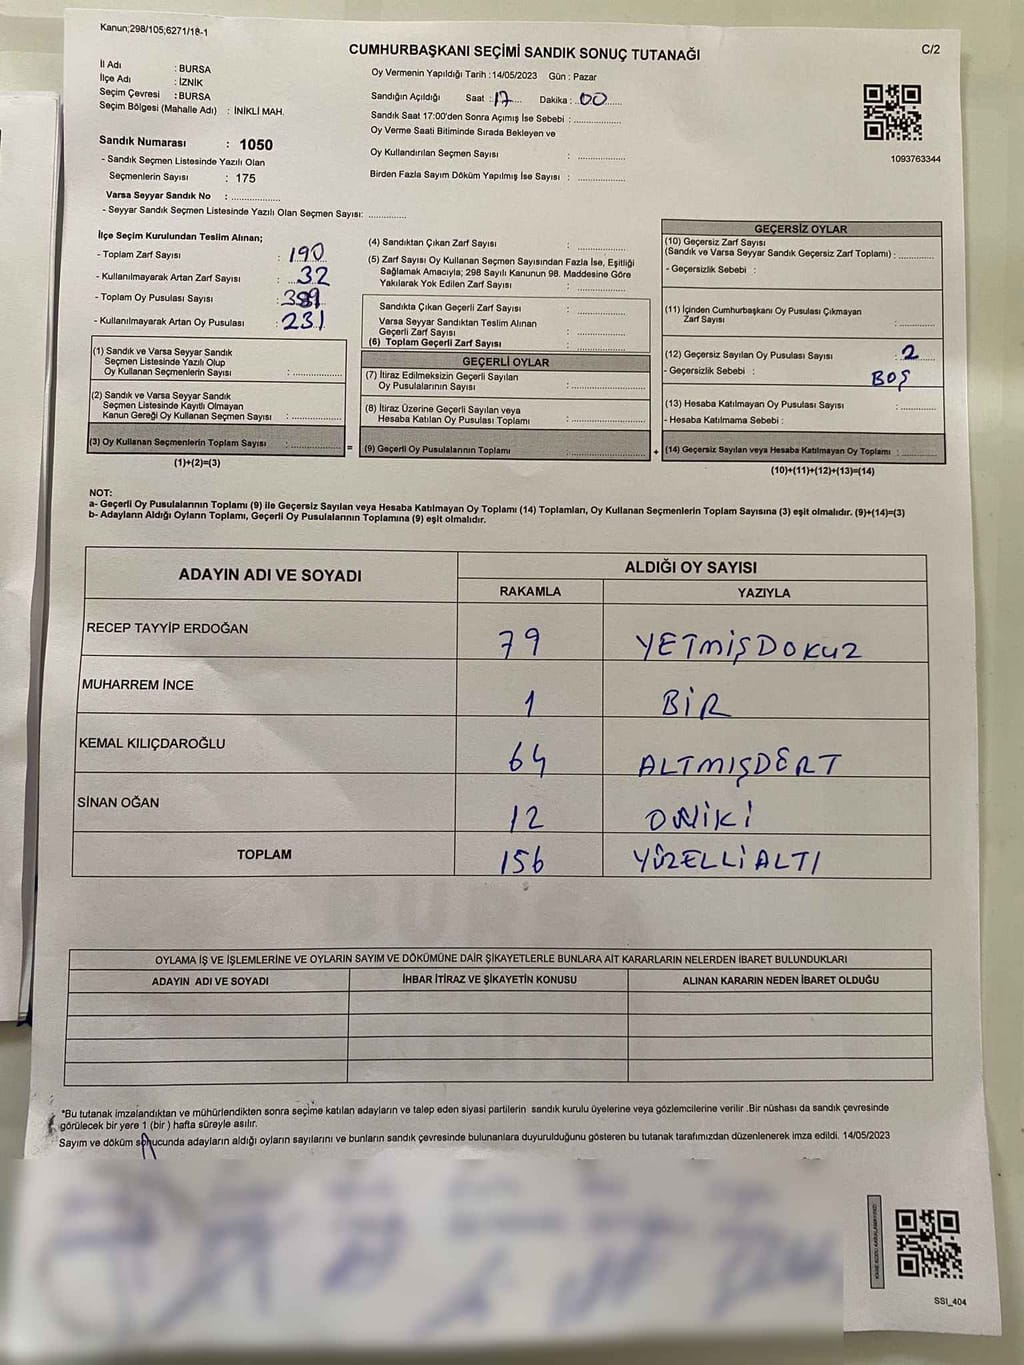 Kanun;298/105;6271/18-1
CUMHURBAŞKANI SEÇİMİ SANDIK SONUÇ TUTANAĞI
C/2
İl Adı : BURSA
İlçe Adı : İZNİK
Seçim Çevresi : BURSA
Seçim Bölgesi (Mahalle Adı) : İNİKLİ MAH.
Sandık Numarası : 1050
- Sandık Seçmen Listesinde Yazılı Olan
Seçmenlerin Sayısı : 175
Varsa Seyyar Sandık No : ..................
- Seyyar Sandık Seçmen Listesinde Yazılı Olan Seçmen Sayısı: ..............
Oy Vermenin Yapıldığı Tarih : 14/05/2023 Gün : Pazar
Sandığın Açıldığı Saat : 17 Dakika : 00
Sandık Saat 17:00'den Sonra Açımış İse Sebebi : ..................
Oy Verme Saati Bitiminde Sırada Bekleyen ve
Oy Kullandırılan Seçmen Sayısı : ..................
Birden Fazla Sayım Döküm Yapılmış İse Sayısı : ..................
1093763344
İlçe Seçim Kurulundan Teslim Alınan;
- Toplam Zarf Sayısı : 190
- Kullanılmayarak Artan Zarf Sayısı : 32
- Toplam Oy Pusulası Sayısı : 389
- Kullanılmayarak Artan Oy Pusulası : 231
(1) Sandık ve Varsa Seyyar Sandık
Seçmen Listesinde Yazılı Olup
Oy Kullanan Seçmenlerin Sayısı : ..................
(2) Sandık ve Varsa Seyyar Sandık
Seçmen Listesinde Kayıtlı Olmayan
Kanun Gereği Oy Kullanan Seçmen Sayısı : ..................
(3) Oy Kullanan Seçmenlerin Toplam Sayısı : ..................
(1)+(2)=(3)
(4) Sandıktan Çıkan Zarf Sayısı : ..................
(5) Zarf Sayısı Oy Kullanan Seçmen Sayısından Fazla İse, Eşitliği
Sağlamak Amacıyla; 298 Sayılı Kanunun 98. Maddesine Göre
Yakılarak Yok Edilen Zarf Sayısı : ..................
Sandıkta Çıkan Geçerli Zarf Sayısı : ..................
Varsa Seyyar Sandıktan Teslim Alınan
Geçerli Zarf Sayısı : ..................
(6) Toplam Geçerli Zarf Sayısı : ..................
GEÇERLİ OYLAR
(7) İtiraz Edilmeksizin Geçerli Sayılan
Oy Pusulalarının Sayısı : ..................
(8) İtiraz Üzerine Geçerli Sayılan veya
Hesaba Katılan Oy Pusulası Toplamı : ..................
= (9) Geçerli Oy Pusulalarının Toplamı : ..................
GEÇERSİZ OYLAR
(10) Geçersiz Zarf Sayısı
(Sandık ve Varsa Seyyar Sandık Geçersiz Zarf Toplamı) : ..............
- Geçersizlik Sebebi :
(11) İçinden Cumhurbaşkanı Oy Pusulası Çıkmayan
Zarf Sayısı : ..............
(12) Geçersiz Sayılan Oy Pusulası Sayısı : 2
- Geçersizlik Sebebi : BOŞ
(13) Hesaba Katılmayan Oy Pusulası Sayısı : ..............
- Hesaba Katılmama Sebebi :
+ (14) Geçersiz Sayılan veya Hesaba Katılmayan Oy Toplamı : ..............
(10)+(11)+(12)+(13)=(14)
NOT:
a- Geçerli Oy Pusulalarının Toplamı (9) ile Geçersiz Sayılan veya Hesaba Katılmayan Oy Toplamı (14) Toplamları, Oy Kullanan Seçmenlerin Toplam Sayısına (3) eşit olmalıdır. (9)+(14)=(3)
b- Adayların Aldığı Oyların Toplamı, Geçerli Oy Pusulalarının Toplamına (9) eşit olmalıdır.
ADAYIN ADI VE SOYADI ALDIĞI OY SAYISI
RAKAMLA YAZIYLA
RECEP TAYYİP ERDOĞAN 79 YETMİŞDOKUZ
MUHARREM İNCE 1 BİR
KEMAL KILIÇDAROĞLU 64 ALTMIŞDERT
SİNAN OĞAN 12 ONİKİ
TOPLAM 156 YÜZELLİALTI
OYLAMA İŞ VE İŞLEMLERİNE VE OYLARIN SAYIM VE DÖKÜMÜNE DAİR ŞİKAYETLERLE BUNLARA AİT KARARLARIN NELERDEN İBARET BULUNDUKLARI
ADAYIN ADI VE SOYADI İHBAR İTİRAZ VE ŞİKAYETİN KONUSU ALINAN KARARIN NEDEN İBARET OLDUĞU
*Bu tutanak imzalandıktan ve mühürlendikten sonra seçime katılan adayların ve talep eden siyasi partilerin sandık kurulu üyelerine veya gözlemcilerine verilir .Bir nüshası da sandık çevresinde
görülecek bir yere 1 (bir ) hafta süreyle asılır.
Sayım ve döküm sonucunda adayların aldığı oyların sayılarını ve bunların sandık çevresinde bulunanlara duyurulduğunu gösteren bu tutanak tarafımızdan düzenlenerek imza edildi. 14/05/2023
SSI_404